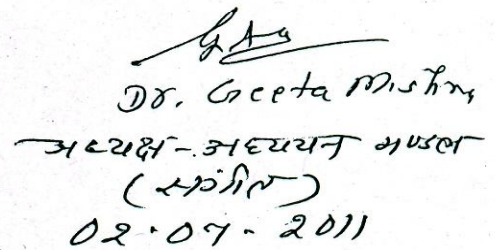 Dr. Geeta Mishra
अध्यक्ष - अध्ययन मण्डल
(संगीत)
02.07-2011